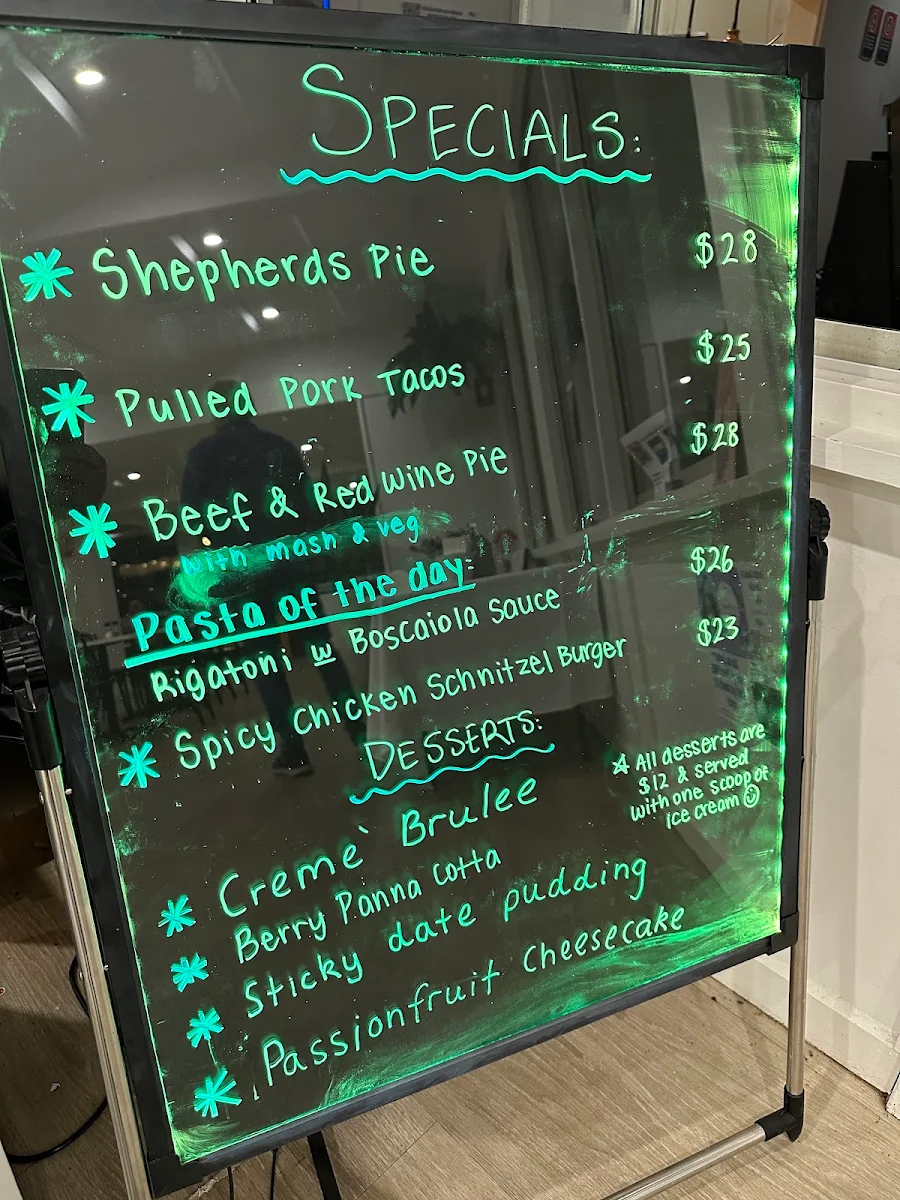 SPECIALS:
* Shepherds Pie $28
* Pulled Pork Tacos $25
* Beef & Red Wine Pie $28
with mash & veg
Pasta of the day:
Rigatoni w Boscaiola Sauce $26
* Spicy Chicken Schnitzel Burger $23
DESSERTS:
* All desserts are
$12 & served
with one scoop of
ice cream ☺
* Creme` Brulee
* Berry Panna Cotta
* Sticky date pudding
* Passionfruit Cheesecake